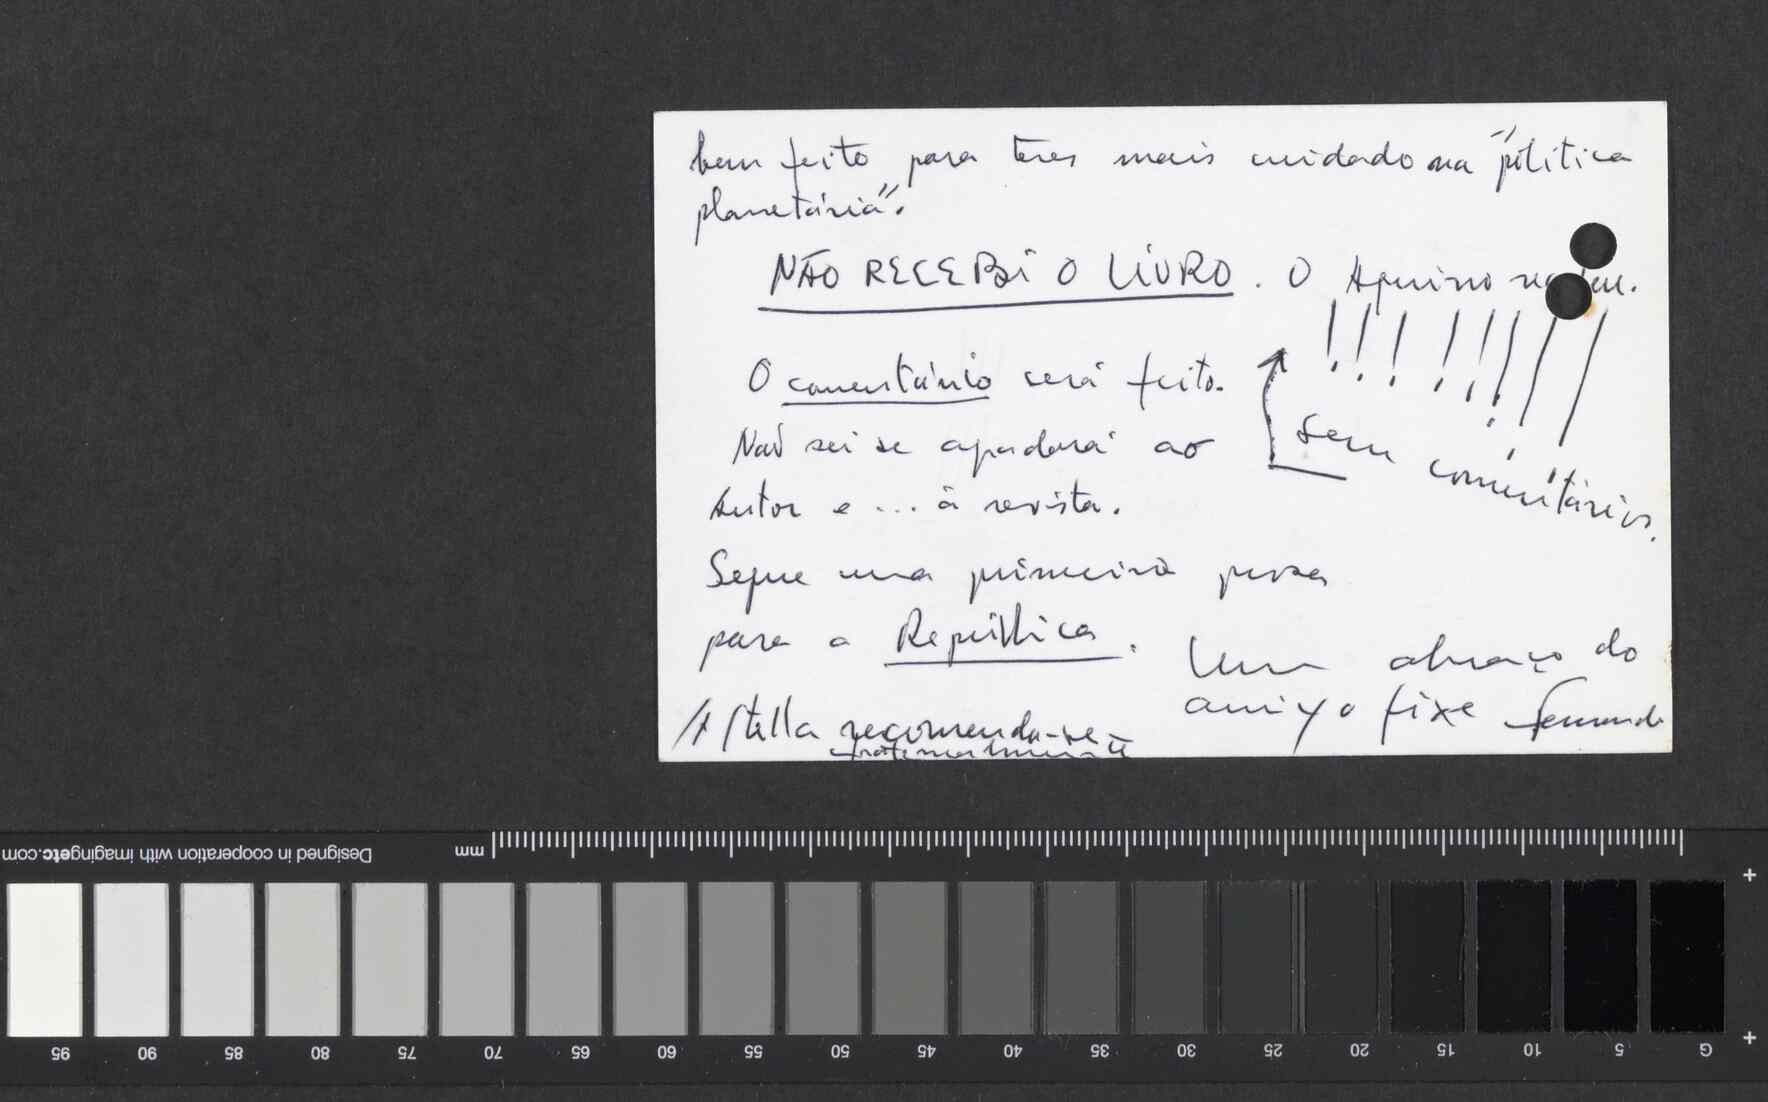 bem feito para teres mais cuidado na "política
planetária".
NÃO RECEBI O LIVRO. O Aquino
!!!!!!!!
O comentário será feito.
Não sei se agradará ao
Autor e ... à revista.
Sem comentários.
Segue uma primeira prosa
para a República.
Um abraço do
amigo fixe Fernando
A Stella recomenda-se
fraternalmente
Designed in cooperation with imagingetc.com
mm
95 90 85 80 75 70 65 60 55 50 45 40 35 30 25 20 15 10 5 G